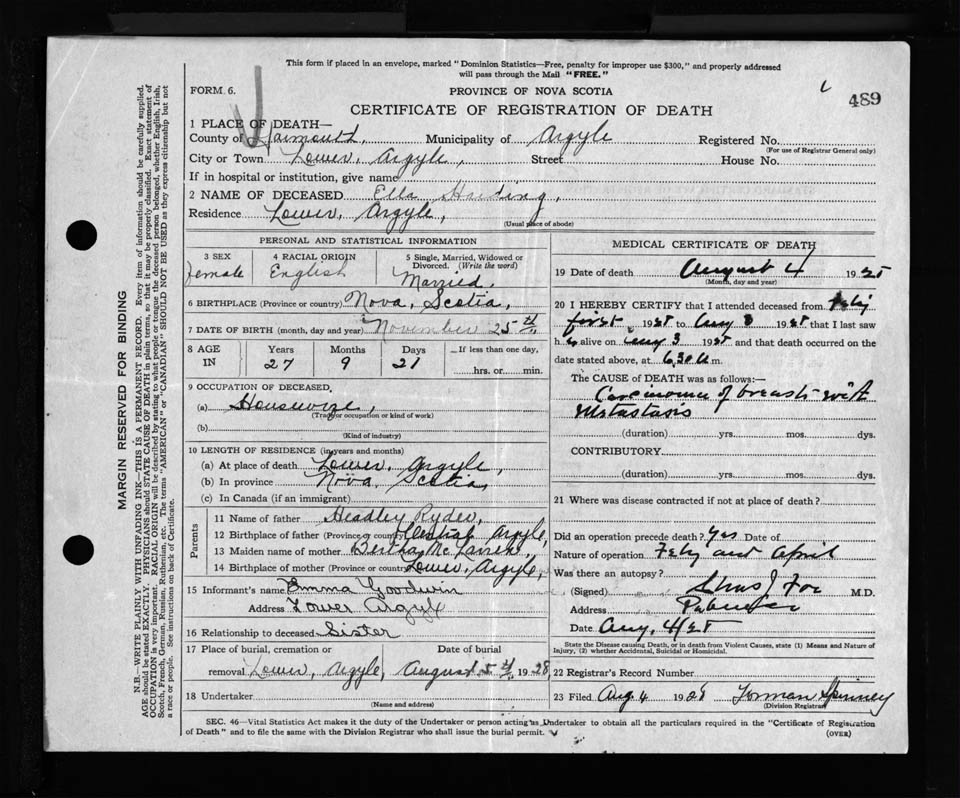 This form if placed in an envelope, marked "Dominion Statistics—Free, penalty for improper use $300," and properly addressed
will pass through the Mail "FREE."
FORM 6.
PROVINCE OF NOVA SCOTIA
489
CERTIFICATE OF REGISTRATION OF DEATH
1 PLACE OF DEATH—
County of Yarmouth, Municipality of Argyle Registered No.
(For use of Registrar General only)
City or Town Lower, Argyle, Street House No.
If in hospital or institution, give name
2 NAME OF DECEASED Ella Harding,
Residence Lower, Argyle,
(Usual place of abode)
PERSONAL AND STATISTICAL INFORMATION
3 SEX 4 RACIAL ORIGIN 5 Single, Married, Widowed or
Divorced. (Write the word)
female English Married,
6 BIRTHPLACE (Province or country) Nova, Scotia,
7 DATE OF BIRTH (month, day and year) November 25th
8 AGE IN Years Months Days If less than one day,
27 9 21 hrs. or min.
9 OCCUPATION OF DECEASED
(a) Housewife,
(Trade, occupation or kind of work)
(b)
(Kind of industry)
10 LENGTH OF RESIDENCE (in years and months)
(a) At place of death Lower, Argyle,
(b) In province Nova, Scotia,
(c) In Canada (if an immigrant)
Parents
11 Name of father Headley Ryder,
12 Birthplace of father (Province or country) Central Argyle,
13 Maiden name of mother Bertha
14 Birthplace of mother (Province or country) Lower, Argyle,
15 Informant's name Emma Goodwin
Address Lower Argyle
16 Relationship to deceased Sister
17 Place of burial, cremation or Date of burial
removal Lower, Argyle, August 5th 1928,
18 Undertaker
(Name and address)
MEDICAL CERTIFICATE OF DEATH
19 Date of death August 4 1928
(Month, day and year)
20 I HEREBY CERTIFY that I attended deceased from Feby
first, 1928 to Aug 3 1928 that I last saw
h alive on Aug 3 1928 and that death occurred on the
date stated above, at 6.30 a m.
The CAUSE OF DEATH was as follows:—
Carcinoma of breast with
Metastasis
(duration) yrs. mos. dys.
CONTRIBUTORY
(duration) yrs. mos. dys.
21 Where was disease contracted if not at place of death?
Did an operation precede death? Yes Date of
Nature of operation Feby and April
Was there an autopsy?
(Signed) Fox M.D.
Address Pubnico
Date Aug, 4/28
State the Disease causing Death, or in death from Violent Causes, state (1) Means and Nature of
Injury, (2) whether Accidental, Suicidal or Homicidal.
22 Registrar's Record Number
23 Filed Aug 4 1928 Forman Spinney
(Division Registrar)
SEC. 46—Vital Statistics Act makes it the duty of the Undertaker or person acting as Undertaker to obtain all the particulars required in the "Certificate of Registration
of Death" and to file the same with the Division Registrar who shall issue the burial permit.
(OVER)
MARGIN RESERVED FOR BINDING
N.B.—WRITE PLAINLY WITH UNFADING INK—THIS IS A PERMANENT RECORD. Every item of information should be carefully supplied.
AGE should be stated EXACTLY. PHYSICIANS should STATE CAUSE OF DEATH in plain terms, so that it may be properly classified. Exact statement of
OCCUPATION is very important. RACIAL ORIGIN will be described by stating to what people or tongue the deceased person belonged, whether English, Irish,
Scotch, French, German, Russian, Ruthenian, etc. The terms "AMERICAN" or "CANADIAN" SHOULD NOT BE USED as they express citizenship but not
a race or people. See instructions on back of Certificate.